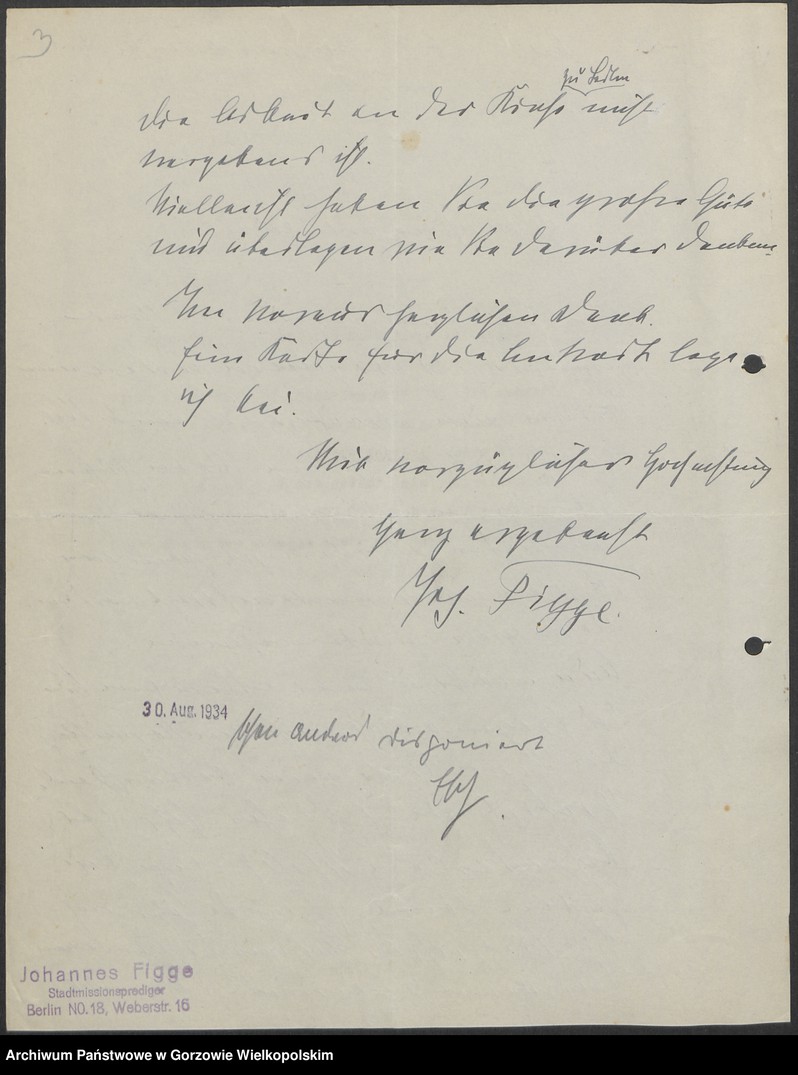 3
zu Berlin
die Arbeit an der Kirche nicht
vergebens ist.
Vielleicht haben Sie die große Güte
und überlegen wie Sie darüber denken.
Im voraus herzlichen Dank.
Eine Karte für die Antwort lege
ich bei.
Mit vorzüglicher Hochachtung
Ganz ergebenst
Joh. Figge.
30. Aug. 1934
Schon anders disponiert
Johannes Figge
Stadtmissionsprediger
Berlin NO.18, Weberstr. 16
Archiwum Państwowe w Gorzowie Wielkopolskim